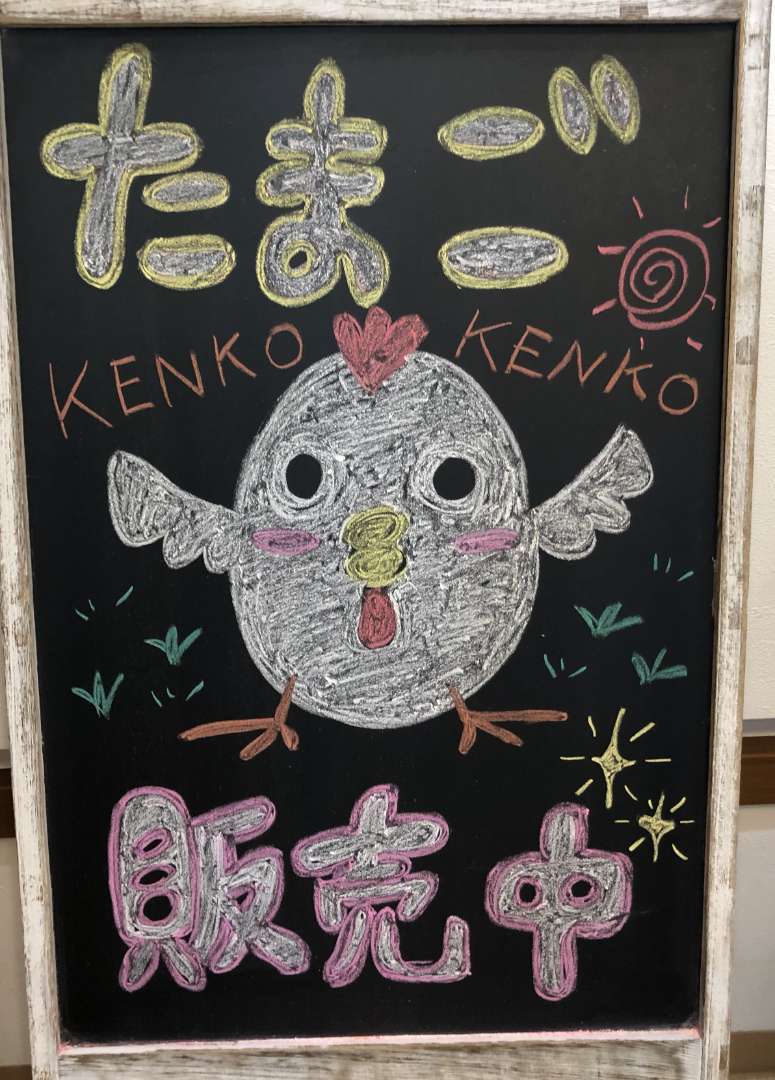 たまご
KENKO KENKO
販売中